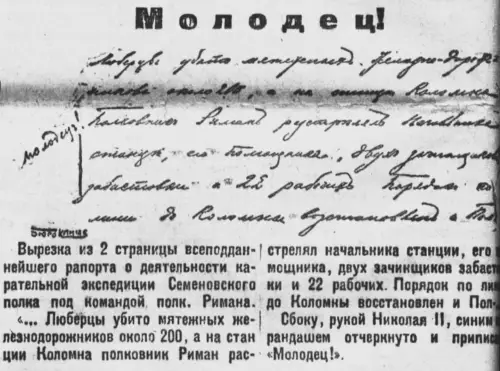 Молодец!
Люберцы убито мятежных железно-дорож-
ников около 200, а на станции Коломна
Полковник Риман расстрелял Начальника
станции, его помощника, двух зачинщиков
забастовки и 22 рабочих Порядок по ли-
нии до Коломны восстановлен и Пол
молодец!
Вырезка из 2 страницы всеподдан-
нейшего рапорта о деятельности ка-
рательной экспедиции Семеновского
полка под командой, полк. Римана.
«... Люберцы убито мятежных же-
лезнодорожников около 200, а на стан
ции Коломна полковник Риман рас-
стрелял начальника станции, его
мощника, двух зачинщиков забаст
ки и 22 рабочих. Порядок по ли
до Коломны восстановлен и Пол
Сбоку, рукой Николая 11, синим
рандашем отчеркнуто и припис
«Молодец!».